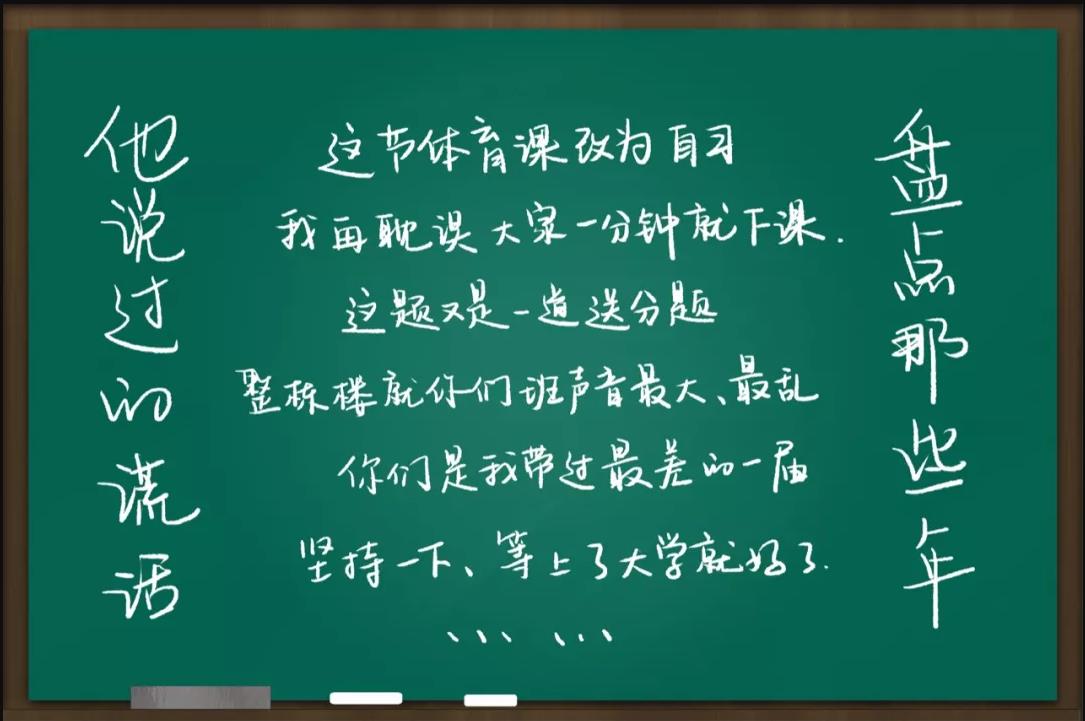 盘点那些年
他说过的谎话
这节体育课改为自习
我再耽误大家一分钟就下课.
这题又是一道送分题
整栋楼就你们班声音最大、最乱
你们是我带过最差的一届
坚持一下、等上了大学就好了.
……